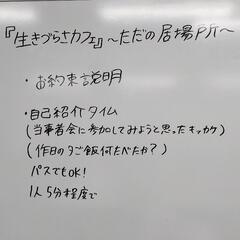 『生きづらさカフェ』〜ただの居場所〜
・お約束説明
・自己紹介タイム
(当事者会に参加してみようと思ったキッカケ)
(作日の夕ご飯何たべたか？)
パスでもOK!
1人5分程度で